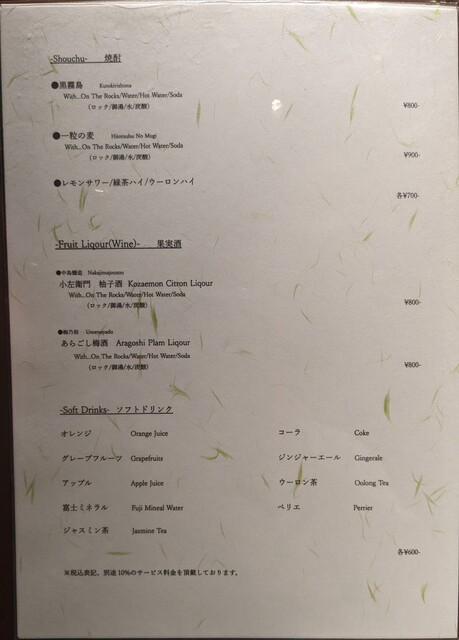 -Shouchu-　焼酎
●黒霧島　Kurokirishima
With...On The Rocks/Water/Hot Water/Soda
(ロック/御湯/水/炭酸)　¥800-
●一粒の麦　Hitotsubu No Mugi
With...On The Rocks/Water/Hot Water/Soda
(ロック/御湯/水/炭酸)　¥900-
●レモンサワー/緑茶ハイ/ウーロンハイ　各¥700-
-Fruit Liqour(Wine)-　果実酒
●中島醸造　Nakajimajouzou
小左衛門　柚子酒　Kozaemon Citron Liqour
With...On The Rocks/Water/Hot Water/Soda
(ロック/御湯/水/炭酸)　¥800-
●梅乃宿　Umenoyado
あらごし梅酒　Aragoshi Plam Liqour
With...On The Rocks/Water/Hot Water/Soda
(ロック/御湯/水/炭酸)　¥800-
-Soft Drinks-　ソフトドリンク
オレンジ　Orange Juice　コーラ　Coke
グレープフルーツ　Grapefruits　ジンジャーエール　Gingerale
アップル　Apple Juice　ウーロン茶　Oolong Tea
富士ミネラル　Fuji Mineal Water　ペリエ　Perrier
ジャスミン茶　Jasmine Tea
各¥600-
※税込表記、別途10%のサービス料金を頂戴しております。